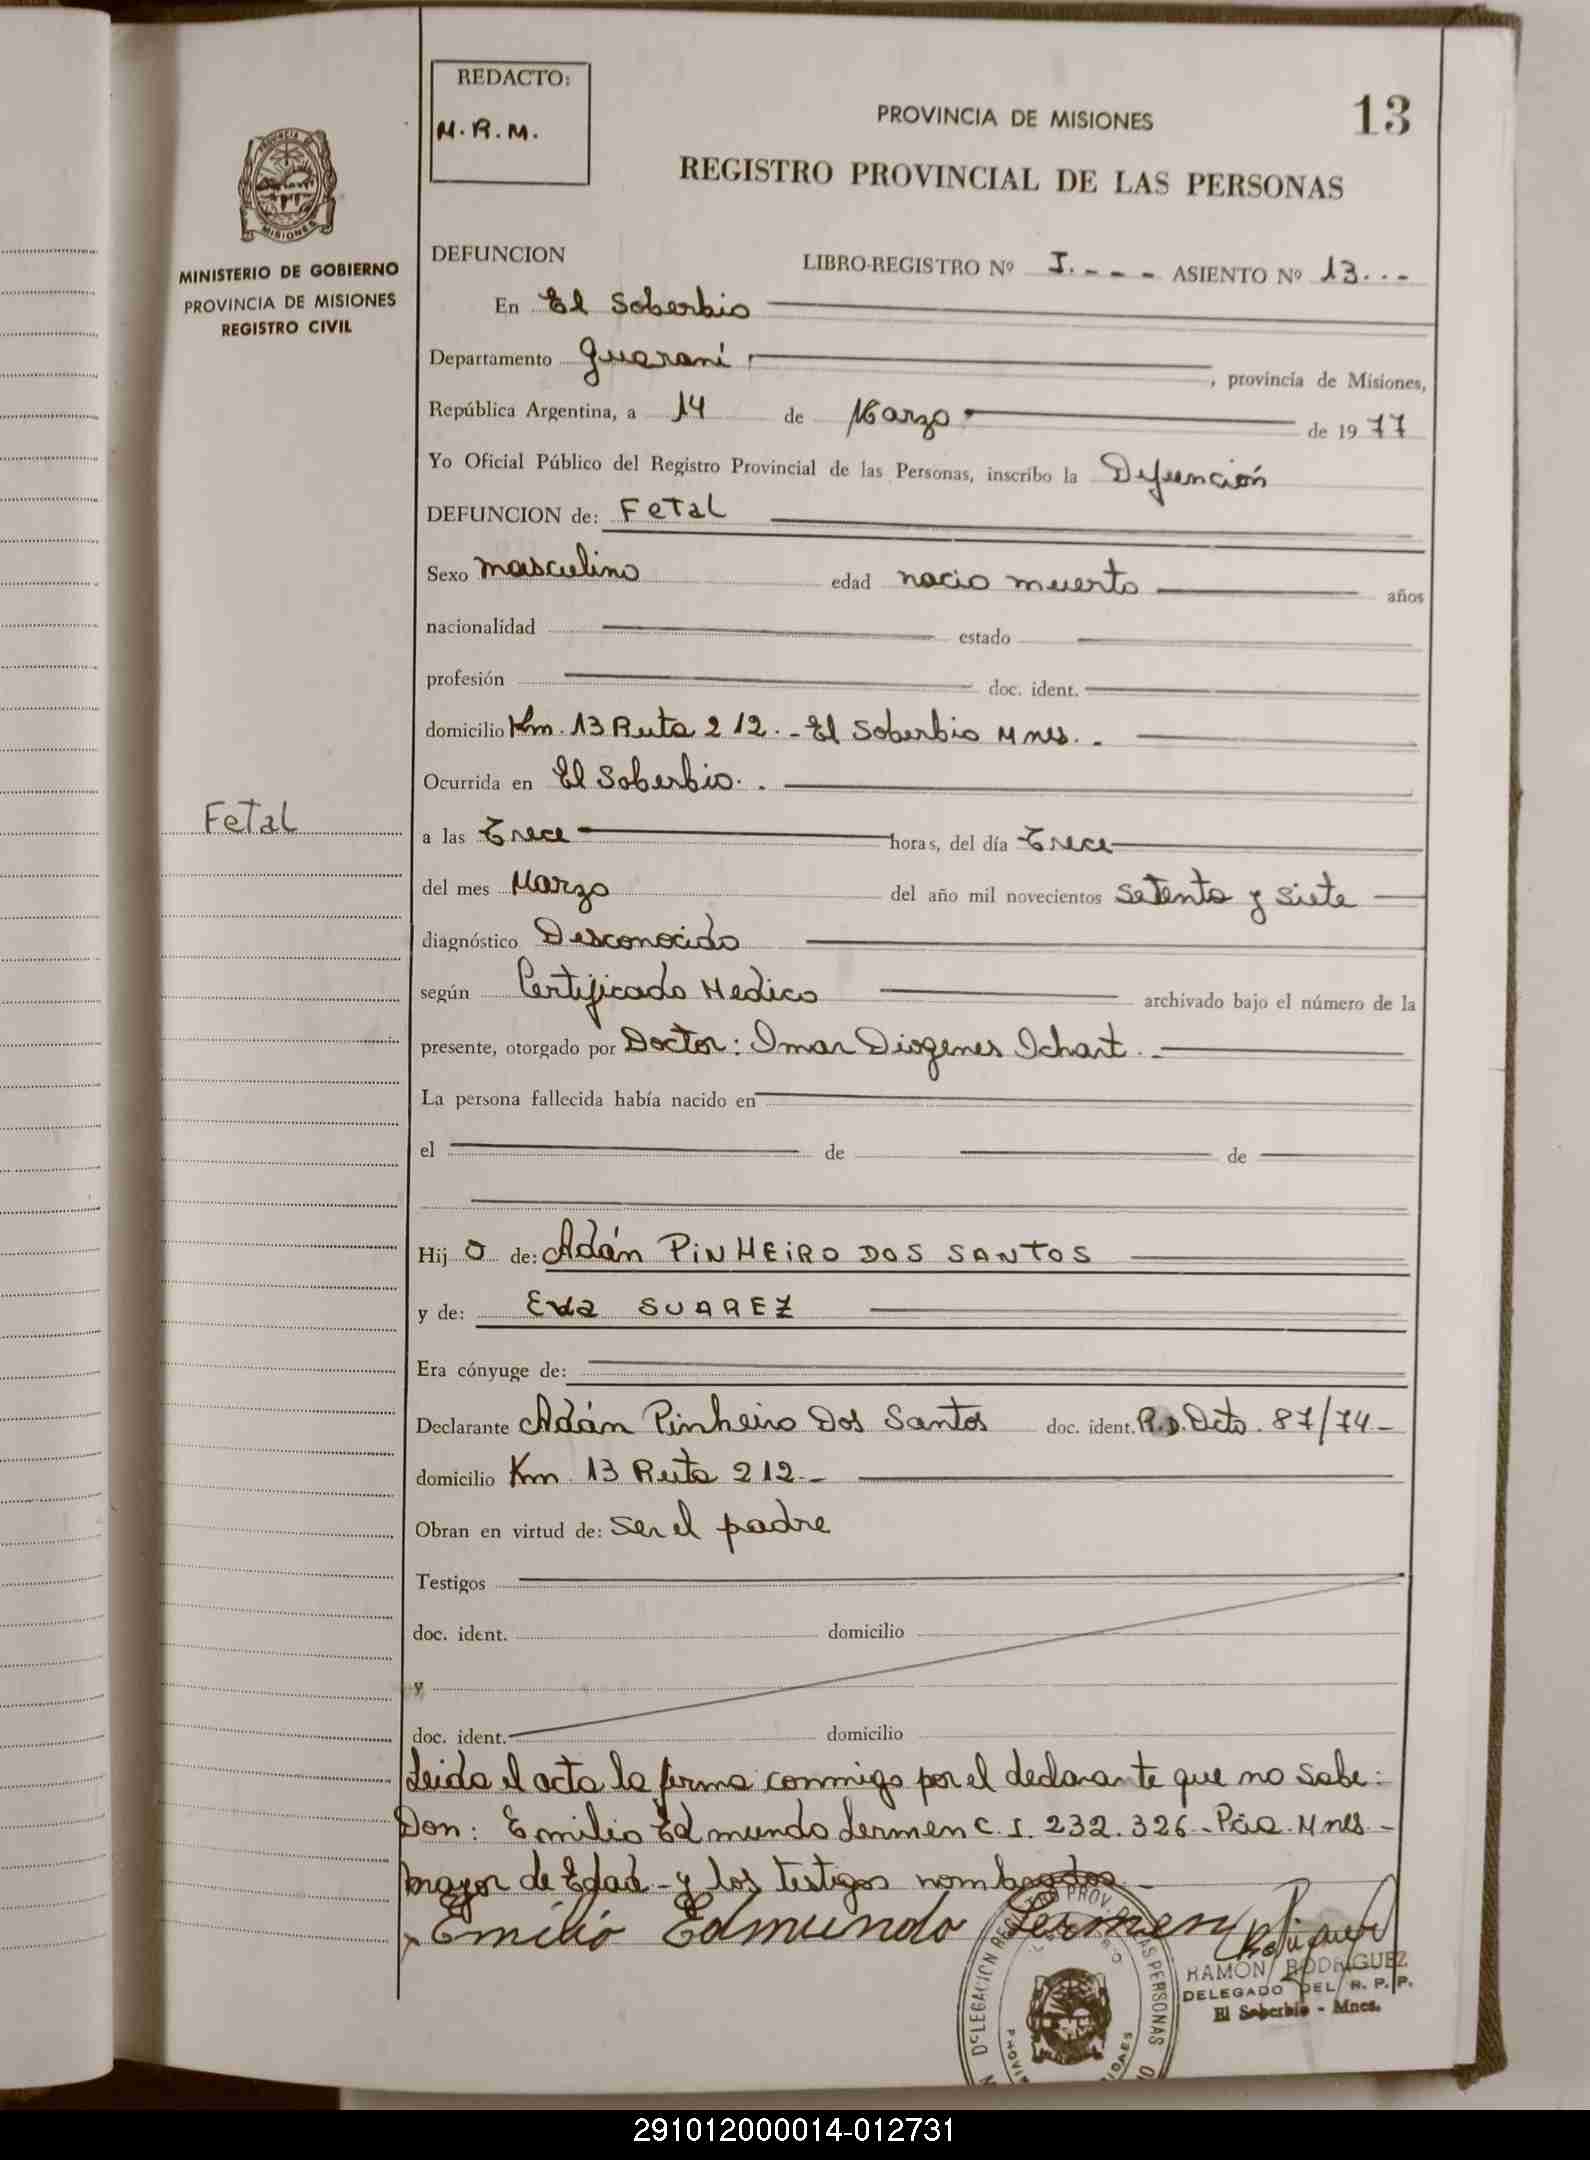 REDACTO:
M.R.M.
PROVINCIA DE MISIONES
13
REGISTRO PROVINCIAL DE LAS PERSONAS
MISIONES
MINISTERIO DE GOBIERNO
PROVINCIA DE MISIONES
REGISTRO CIVIL
DEFUNCION LIBRO-REGISTRO Nº I.--- ASIENTO Nº 13...
En El Soberbio
Departamento Guaraní, provincia de Misiones,
República Argentina, a 14 de Marzo de 1977
Yo Oficial Público del Registro Provincial de las Personas, inscribo la Defunción
DEFUNCION de: Fetal
Sexo masculino edad nacio muerto años
nacionalidad estado
profesión doc. ident.
domicilio Km. 13 Ruta 212.- El Soberbio Mnes..
Ocurrida en El Soberbio..
Fetal
a las Trece horas, del día Trece
del mes Marzo del año mil novecientos Setenta y Siete
diagnóstico Desconocido
según Certificado Medico archivado bajo el número de la
presente, otorgado por Doctor: Omar Diogenes Ichart..
La persona fallecida había nacido en
el de de
Hijo de: Adán PINHEIRO DOS SANTOS
y de: Eva SUAREZ
Era cónyuge de:
Declarante Adán Pinheiro Dos Santos doc. ident. R.D. Dcto. 87/74-
domicilio Km 13 Ruta 212.-
Obran en virtud de: Ser el padre
Testigos
doc. ident. domicilio
y
doc. ident. domicilio
Leida el acta la firma conmigo por el declarante que no Sabe:
Don: Emilio Edmundo Lermen C.I. 232.326- Pcia. Mnes-
mayor de Edad- y los testigos nombrados-
Emilio Edmundo Lermen
DELEGACION REGISTRO PROV. DE LAS PERSONAS
RAMON RODRIGUEZ
DELEGADO DEL R. P. P.
El Soberbio - Mnes.
291012000014-012731